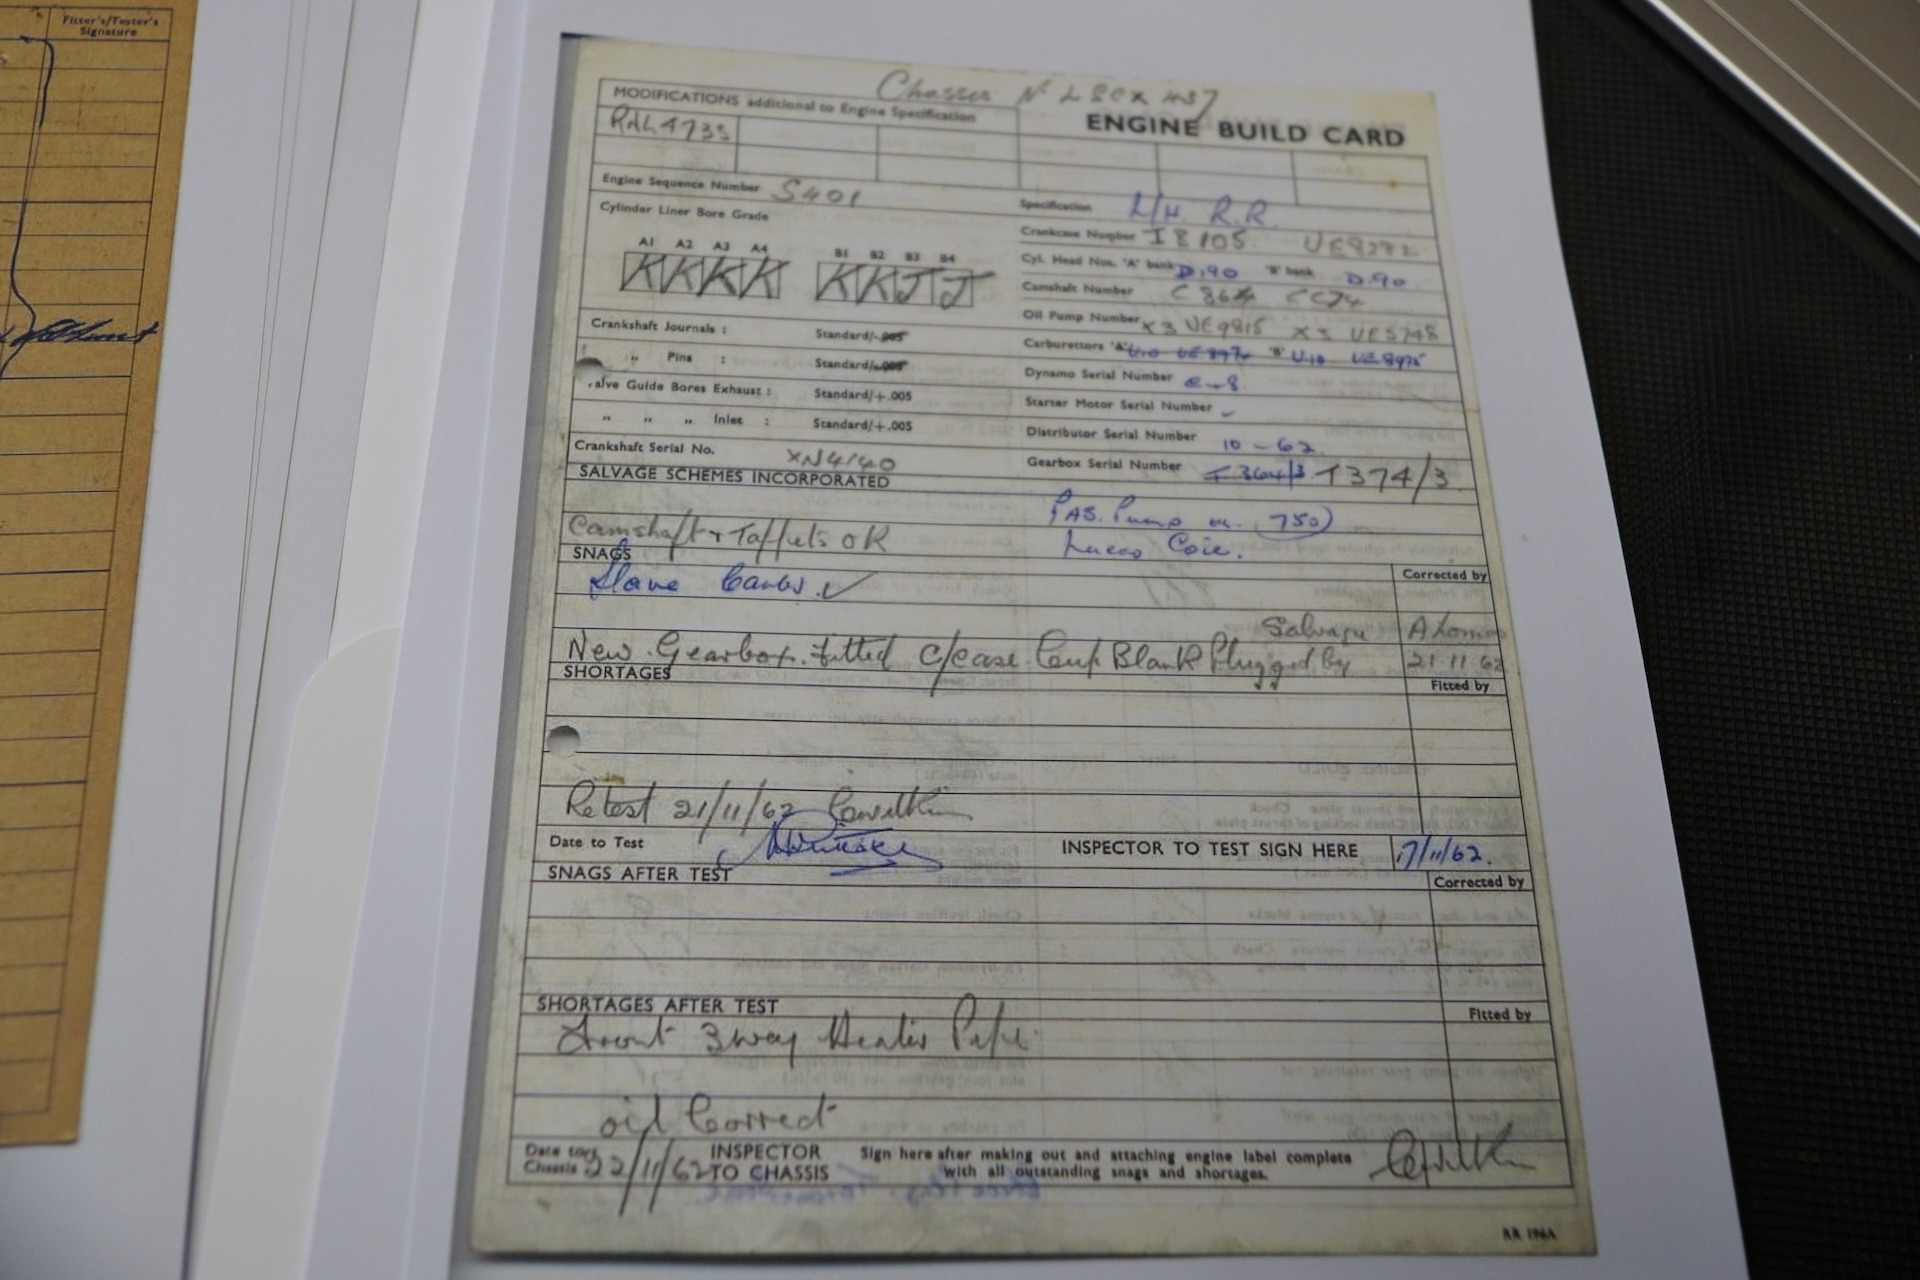 Fitter's/Tester's
Signature
Chassis Nº LSCX 437
MODIFICATIONS additional to Engine Specification
ENGINE BUILD CARD
Engine Sequence Number S401
Specification L/H. R.R.
Cylinder Liner Bore Grade
Crankcase Number IB105 UE8282
A1 A2 A3 A4 B1 B2 B3 B4
K K K K K K J J
Cyl. Head Nos. 'A' bank D.90 'B' bank D.90
Camshaft Number
Oil Pump Number X3 UE9815 X3 UE5748
Crankshaft Journals : Standard/-.005
Carburettors 'A' U.10 UE 8974 'B' U.10 UE 8975
" Pins : Standard/-.005
Dynamo Serial Number
Valve Guide Bores Exhaust : Standard/+.005
Starter Motor Serial Number
" " " Inlet : Standard/+.005
Distributor Serial Number 10-62
Crankshaft Serial No. XN4140
Gearbox Serial Number T364/3 T374/3
SALVAGE SCHEMES INCORPORATED
P.A.S. Pump 750
Camshaft + Tappets OK
Lucas Coil.
SNAGS
Corrected by
Slave Carbs. ✓
Salvage
New Gearbox fitted C/Case Cup Blank Plugged By 21.11.62
SHORTAGES
Fitted by
Retest 21/11/62
Date to Test
INSPECTOR TO TEST SIGN HERE 17/11/62.
SNAGS AFTER TEST
Corrected by
SHORTAGES AFTER TEST
Fitted by
Front 3way Heater Pipe
oil Correct
Date to Chassis 22/11/62 INSPECTOR TO CHASSIS Sign here after making out and attaching engine label complete
with all outstanding snags and shortages.
RR 196A